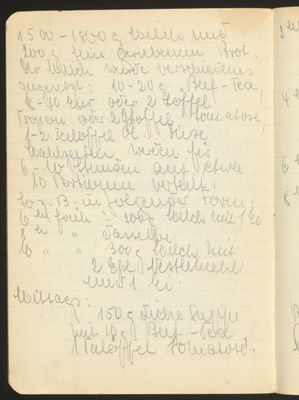 1500 - 1800 g Milch und
200 g fein geriebenem Brot.
Der Milch wurde verschiedenes
zugesetzt: 10-20 g Beef-Tea,
8-10 Eier oder 2 Löffel
Tropon oder 2 Löffel Somatose,
1-2 Teelöffel Diese
Mahlzeiten werden für
6-10 Stunden auf etwa
10 Portionen verteilt.
So z. B. in folgender Form:
6 Uhr früh: 200 Milch mit 1 Ei.
8 " " dasselbe
10 " " 300 g Milch mit
2 Eßl. Nestlemehl
und 1 Ei.
Mittags:
150 g dicke Suppe
mit 10 g Beef-Tea
1 Teelöffel Somatose.